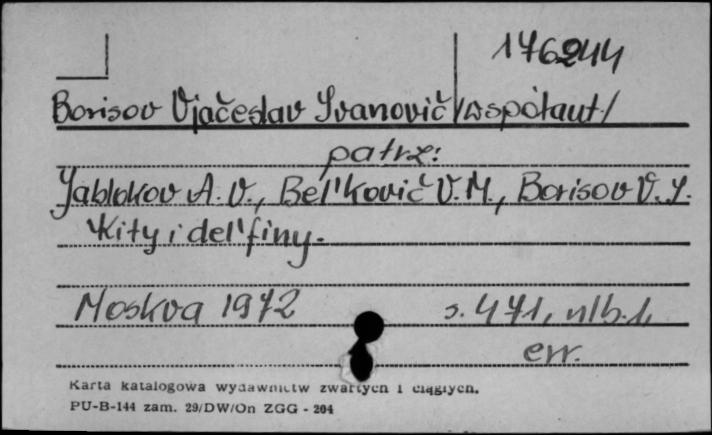 176244
Borisov Vjačeslav Ivanovič /współaut/
patrz:
Jablokov A. V., Bel'kovič V. M., Borisov V. I.
Kity i del'finy.
Moskva 1972
s. 471, nlb. 1,
err.
Karta katalogowa wydawnictw zwartych i ciągłych.
PU-B-144 zam. 29/DW/On ZGG - 204